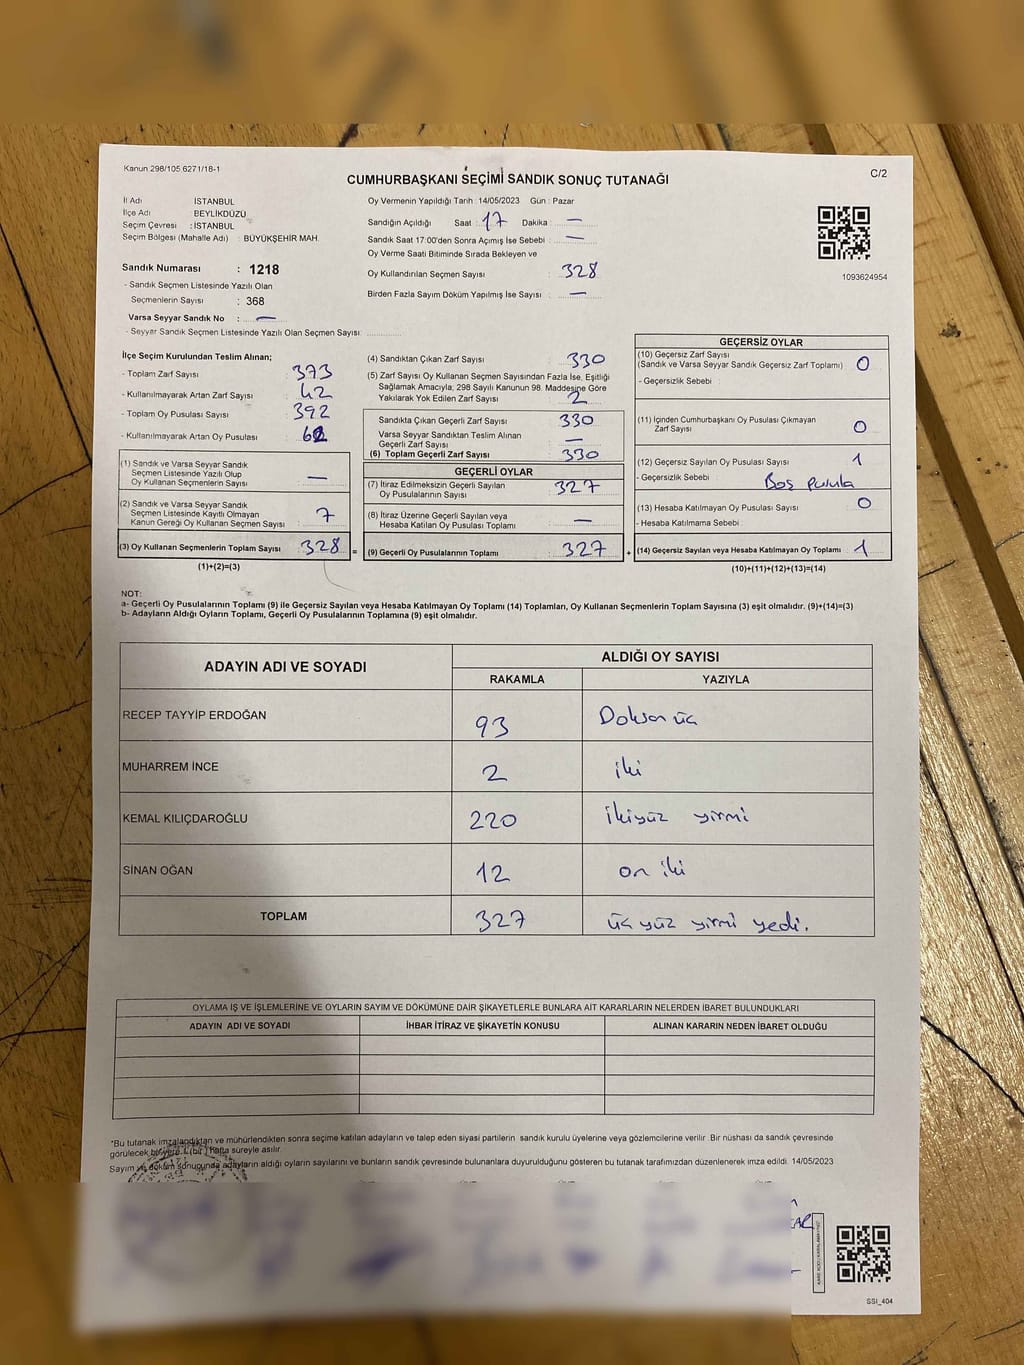 Kanun 298/105 6271/18-1
C/2
CUMHURBAŞKANI SEÇİMİ SANDIK SONUÇ TUTANAĞI
İl Adı : İSTANBUL
İlçe Adı : BEYLİKDÜZÜ
Seçim Çevresi : İSTANBUL
Seçim Bölgesi (Mahalle Adı) : BÜYÜKŞEHİR MAH.
Sandık Numarası : 1218
- Sandık Seçmen Listesinde Yazılı Olan
Seçmenlerin Sayısı : 368
Varsa Seyyar Sandık No : —
- Seyyar Sandık Seçmen Listesinde Yazılı Olan Seçmen Sayısı:
Oy Vermenin Yapıldığı Tarih : 14/05/2023 Gün : Pazar
Sandığın Açıldığı Saat : 17 Dakika : —
Sandık Saat 17:00'den Sonra Açımış İse Sebebi : —
Oy Verme Saati Bitiminde Sırada Bekleyen ve
Oy Kullandırılan Seçmen Sayısı : 328
Birden Fazla Sayım Döküm Yapılmış İse Sayısı : —
1093624954
İlçe Seçim Kurulundan Teslim Alınan;
- Toplam Zarf Sayısı : 373
- Kullanılmayarak Artan Zarf Sayısı : 42
- Toplam Oy Pusulası Sayısı : 392
- Kullanılmayarak Artan Oy Pusulası :
(1) Sandık ve Varsa Seyyar Sandık
Seçmen Listesinde Yazılı Olup
Oy Kullanan Seçmenlerin Sayısı : —
(2) Sandık ve Varsa Seyyar Sandık
Seçmen Listesinde Kayıtlı Olmayan
Kanun Gereği Oy Kullanan Seçmen Sayısı : 7
(3) Oy Kullanan Seçmenlerin Toplam Sayısı : 328 =
(1)+(2)=(3)
(4) Sandıktan Çıkan Zarf Sayısı : 330
(5) Zarf Sayısı Oy Kullanan Seçmen Sayısından Fazla İse, Eşitliği
Sağlamak Amacıyla; 298 Sayılı Kanunun 98. Maddesine Göre
Yakılarak Yok Edilen Zarf Sayısı : 2
Sandıkta Çıkan Geçerli Zarf Sayısı : 330
Varsa Seyyar Sandıktan Teslim Alınan
Geçerli Zarf Sayısı : —
(6) Toplam Geçerli Zarf Sayısı : 330
GEÇERLİ OYLAR
(7) İtiraz Edilmeksizin Geçerli Sayılan
Oy Pusulalarının Sayısı : 327
(8) İtiraz Üzerine Geçerli Sayılan veya
Hesaba Katılan Oy Pusulası Toplamı : —
(9) Geçerli Oy Pusulalarının Toplamı : 327 +
GEÇERSİZ OYLAR
(10) Geçersiz Zarf Sayısı
(Sandık ve Varsa Seyyar Sandık Geçersiz Zarf Toplamı) : 0
- Geçersizlik Sebebi :
(11) İçinden Cumhurbaşkanı Oy Pusulası Çıkmayan
Zarf Sayısı : 0
(12) Geçersiz Sayılan Oy Pusulası Sayısı : 1
- Geçersizlik Sebebi : Boş pusula
(13) Hesaba Katılmayan Oy Pusulası Sayısı : 0
- Hesaba Katılmama Sebebi :
(14) Geçersiz Sayılan veya Hesaba Katılmayan Oy Toplamı : 1
(10)+(11)+(12)+(13)=(14)
NOT:
a- Geçerli Oy Pusulalarının Toplamı (9) ile Geçersiz Sayılan veya Hesaba Katılmayan Oy Toplamı (14) Toplamları, Oy Kullanan Seçmenlerin Toplam Sayısına (3) eşit olmalıdır. (9)+(14)=(3)
b- Adayların Aldığı Oyların Toplamı, Geçerli Oy Pusulalarının Toplamına (9) eşit olmalıdır.
ADAYIN ADI VE SOYADI ALDIĞI OY SAYISI
RAKAMLA YAZIYLA
RECEP TAYYİP ERDOĞAN 93 Doksan üç
MUHARREM İNCE 2 iki
KEMAL KILIÇDAROĞLU 220 ikiyüz yirmi
SİNAN OĞAN 12 on iki
TOPLAM 327 üç yüz yirmi yedi.
OYLAMA İŞ VE İŞLEMLERİNE VE OYLARIN SAYIM VE DÖKÜMÜNE DAİR ŞİKAYETLERLE BUNLARA AİT KARARLARIN NELERDEN İBARET BULUNDUKLARI
ADAYIN ADI VE SOYADI İHBAR İTİRAZ VE ŞİKAYETİN KONUSU ALINAN KARARIN NEDEN İBARET OLDUĞU
*Bu tutanak imzalandıktan ve mühürlendikten sonra seçime katılan adayların ve talep eden siyasi partilerin sandık kurulu üyelerine veya gözlemcilerine verilir. Bir nüshası da sandık çevresinde
görülecek bir yere 1 (bir) hafta süreyle asılır.
Sayım ve döküm sonucunda adayların aldığı oyların sayılarını ve bunların sandık çevresinde bulunanlara duyurulduğunu gösteren bu tutanak tarafımızdan düzenlenerek imza edildi. 14/05/2023
SSI_404